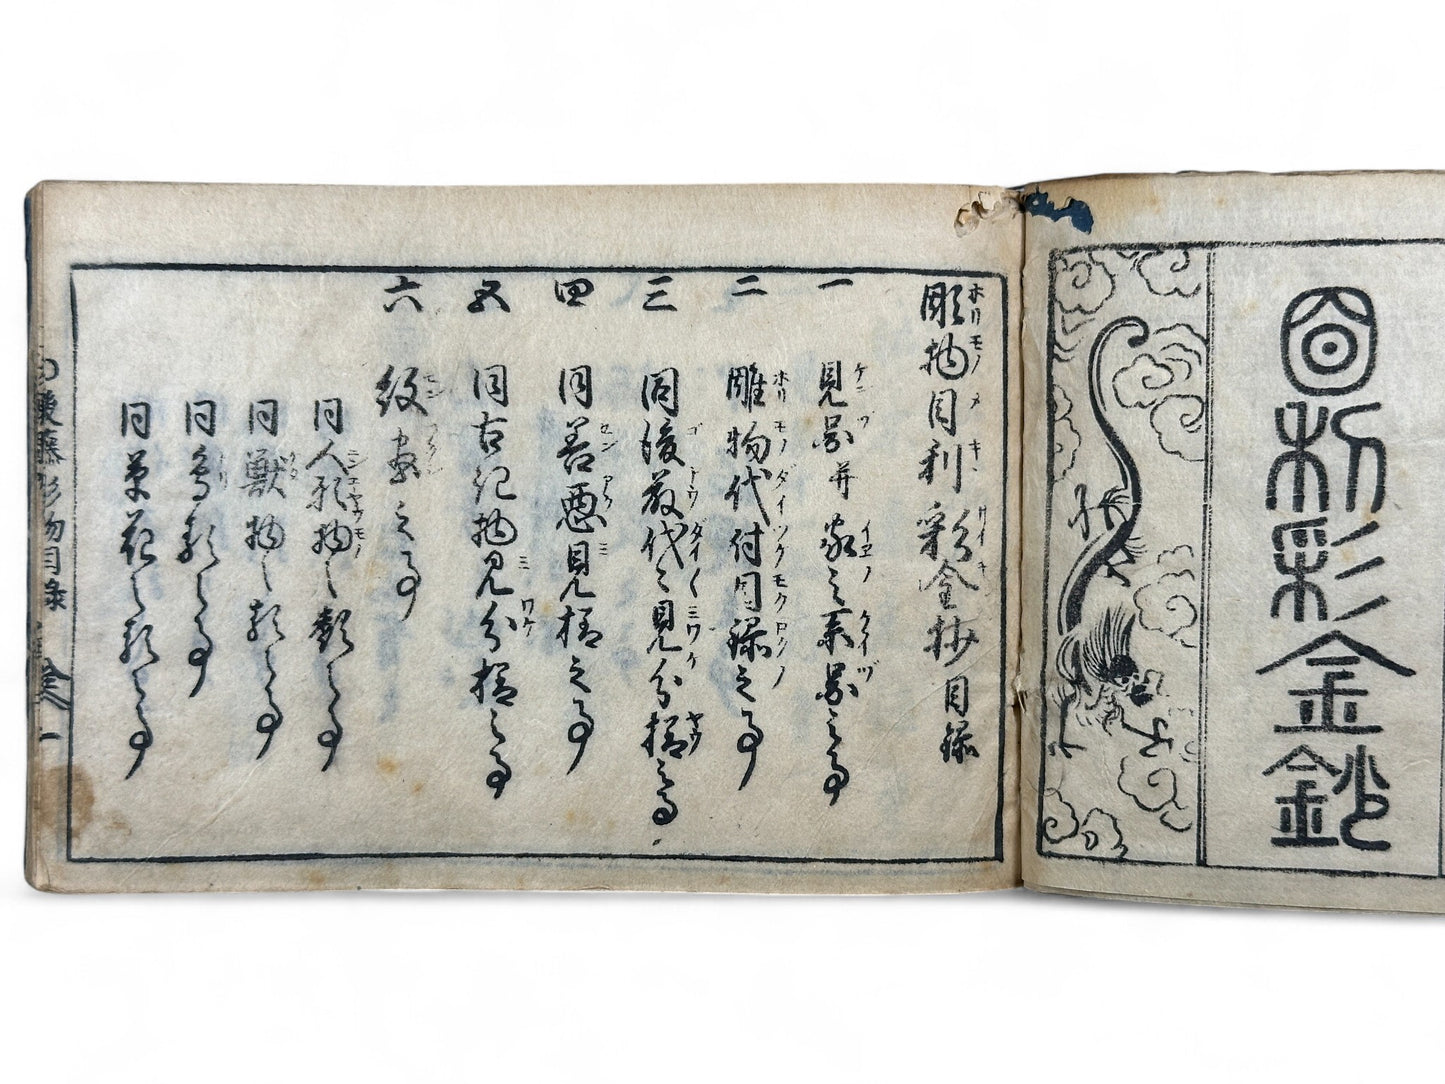 目利彩金鈔
彫物目利彩金抄目録
一 見図并家之系図之事
二 雕物代付目録之事
三 同後藤代々見分様之事
四 同善悪見様之事
五 同古記物見分様之事
六 紋尽之事
同人形物之類之事
同獣物之類之事
同鳥類之事
同草花之類之事
後藤彫物目録 一